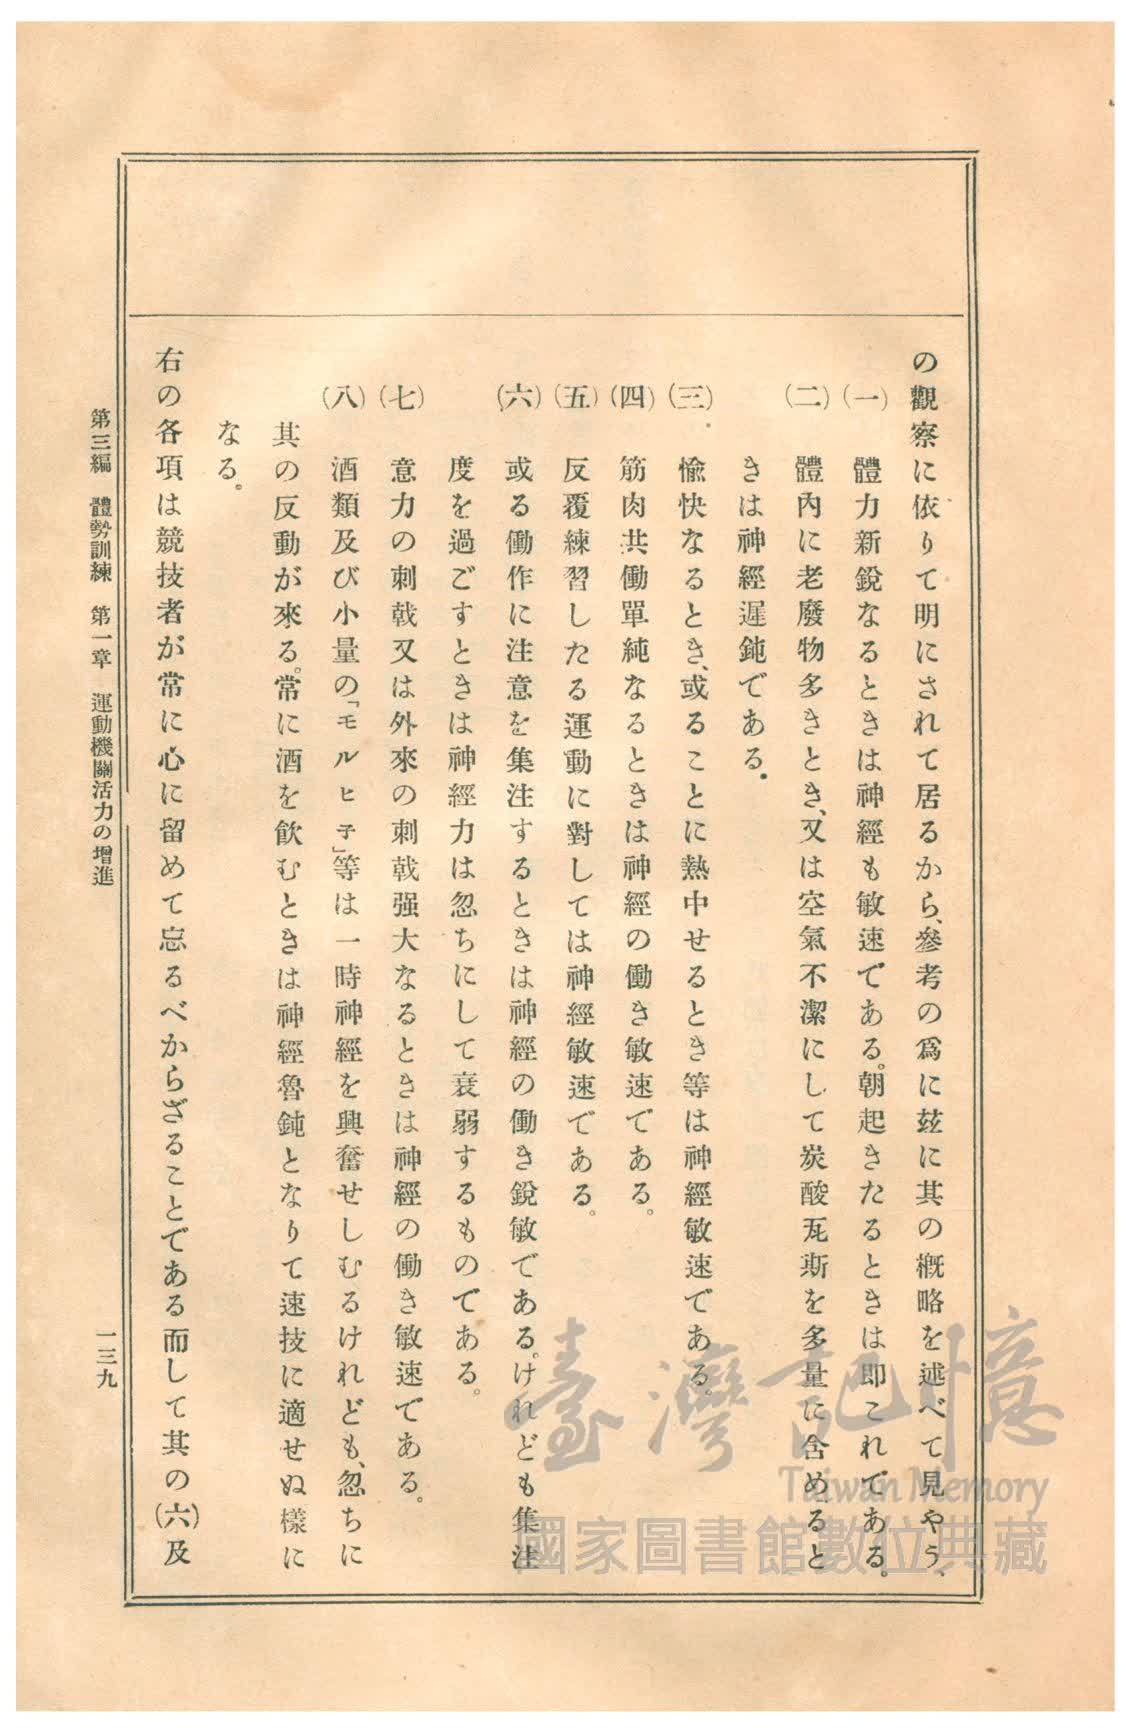 の觀察に依りて明にされて居るから、參考の爲に玆に其の槪略を述べて見やう、
(一) 體力新銳なるときは神經も敏速である。朝起きたるときは卽これである。
(二) 體內に老廢物多きとき、又は空氣不潔にして炭酸瓦斯を多量に含めると
きは神經遲鈍である。
(三) 愉快なるとき、或ることに熱中せるとき等は神經敏速である。
(四) 筋肉共働單純なるときは神經の働き敏速である。
(五) 反覆練習したる運動に對しては神經敏速である。
(六) 或る働作に注意を集注するときは神經の働き銳敏である。けれども集注
度を過ごすときは神經力は忽ちにして衰弱するものである。
(七) 意力の刺戟又は外來の刺戟强大なるときは神經の働き敏速である。
(八) 酒類及び小量の「モルヒ子」等は一時神經を興奮せしむるけれども、忽ちに
其の反動が來る。常に酒を飮むときは神經魯鈍となりて速技に適せぬ樣に
なる。
右の各項は競技者が常に心に留めて忘るべからざることである而して其の(六)及
第三編 體勢訓練 第一章 運動機關活力の增進
一三九
臺灣記憶
Taiwan Memory
國家圖書館數位典藏